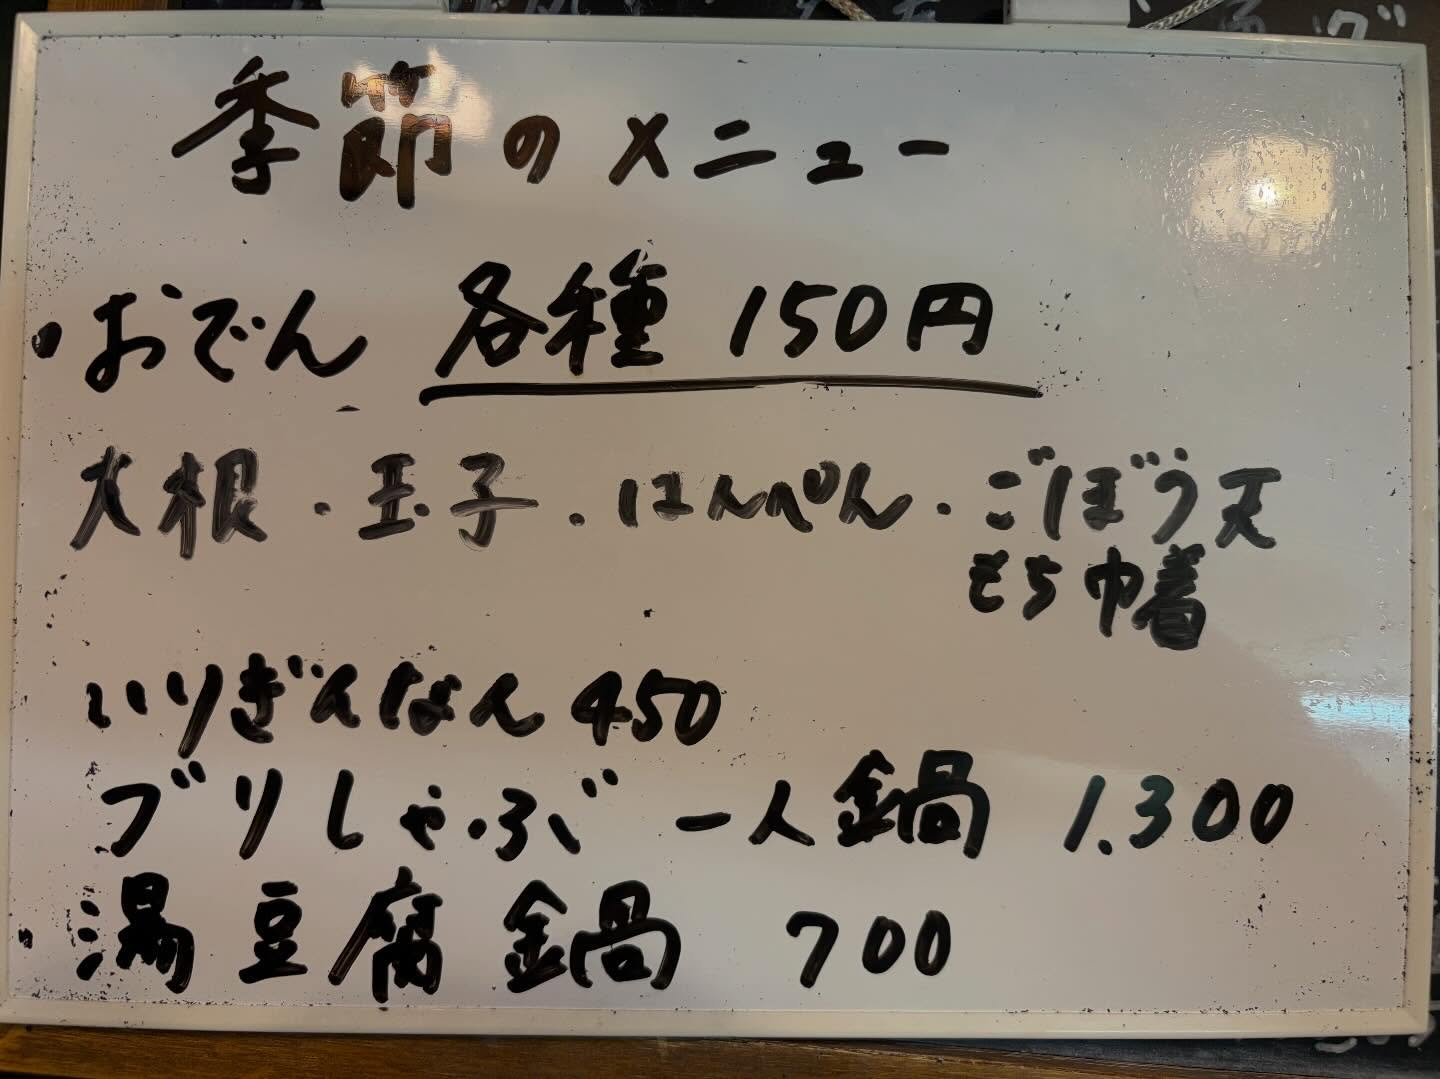 季節のメニュー
・おでん 各種 150円
大根・玉子・はんぺん・ごぼう天
もち巾着
いりぎんなん 450
ブリしゃぶ 一人鍋 1.300
・湯豆腐鍋 700